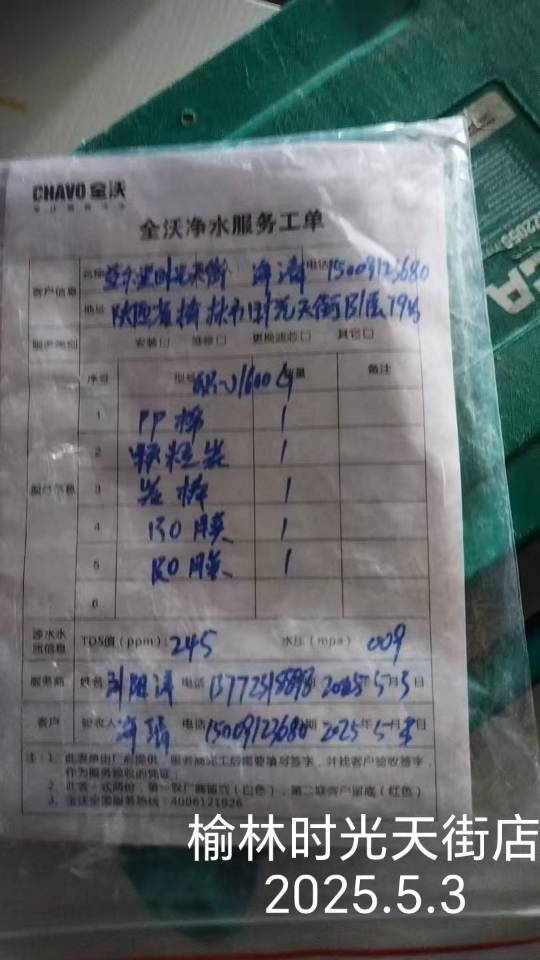 CHAVO 全沃
全沃净水服务工单
客户信息
名称 时光天街 海清 电话 15009123680
地址 陕西省榆林市时光天街B1层79号
服务类别 安装□ 维修□ 更换滤芯□ 其它□
序号 型号 数量 备注
1600G
1 PP棉 1
2 颗粒炭 1
3 炭棒 1
4 RO膜 1
5 RO膜 1
6
源水水质信息 TDS值(ppm) 245 水压(mpa) 009
服务商 姓名 电话 日期 2025年5月3日
客户 验收人 海清 电话 15009123680 日期 2025年5月 日
注:1、此表单由厂商提供,服务商完工后需要填写签字,并找客户验收签字,
作为服务验收的凭证;
2、此表一式两份,第一联厂商留底(白色),第二联客户留底(红色)
3、全沃全国服务热线:4006121826
榆林时光天街店
2025.5.3